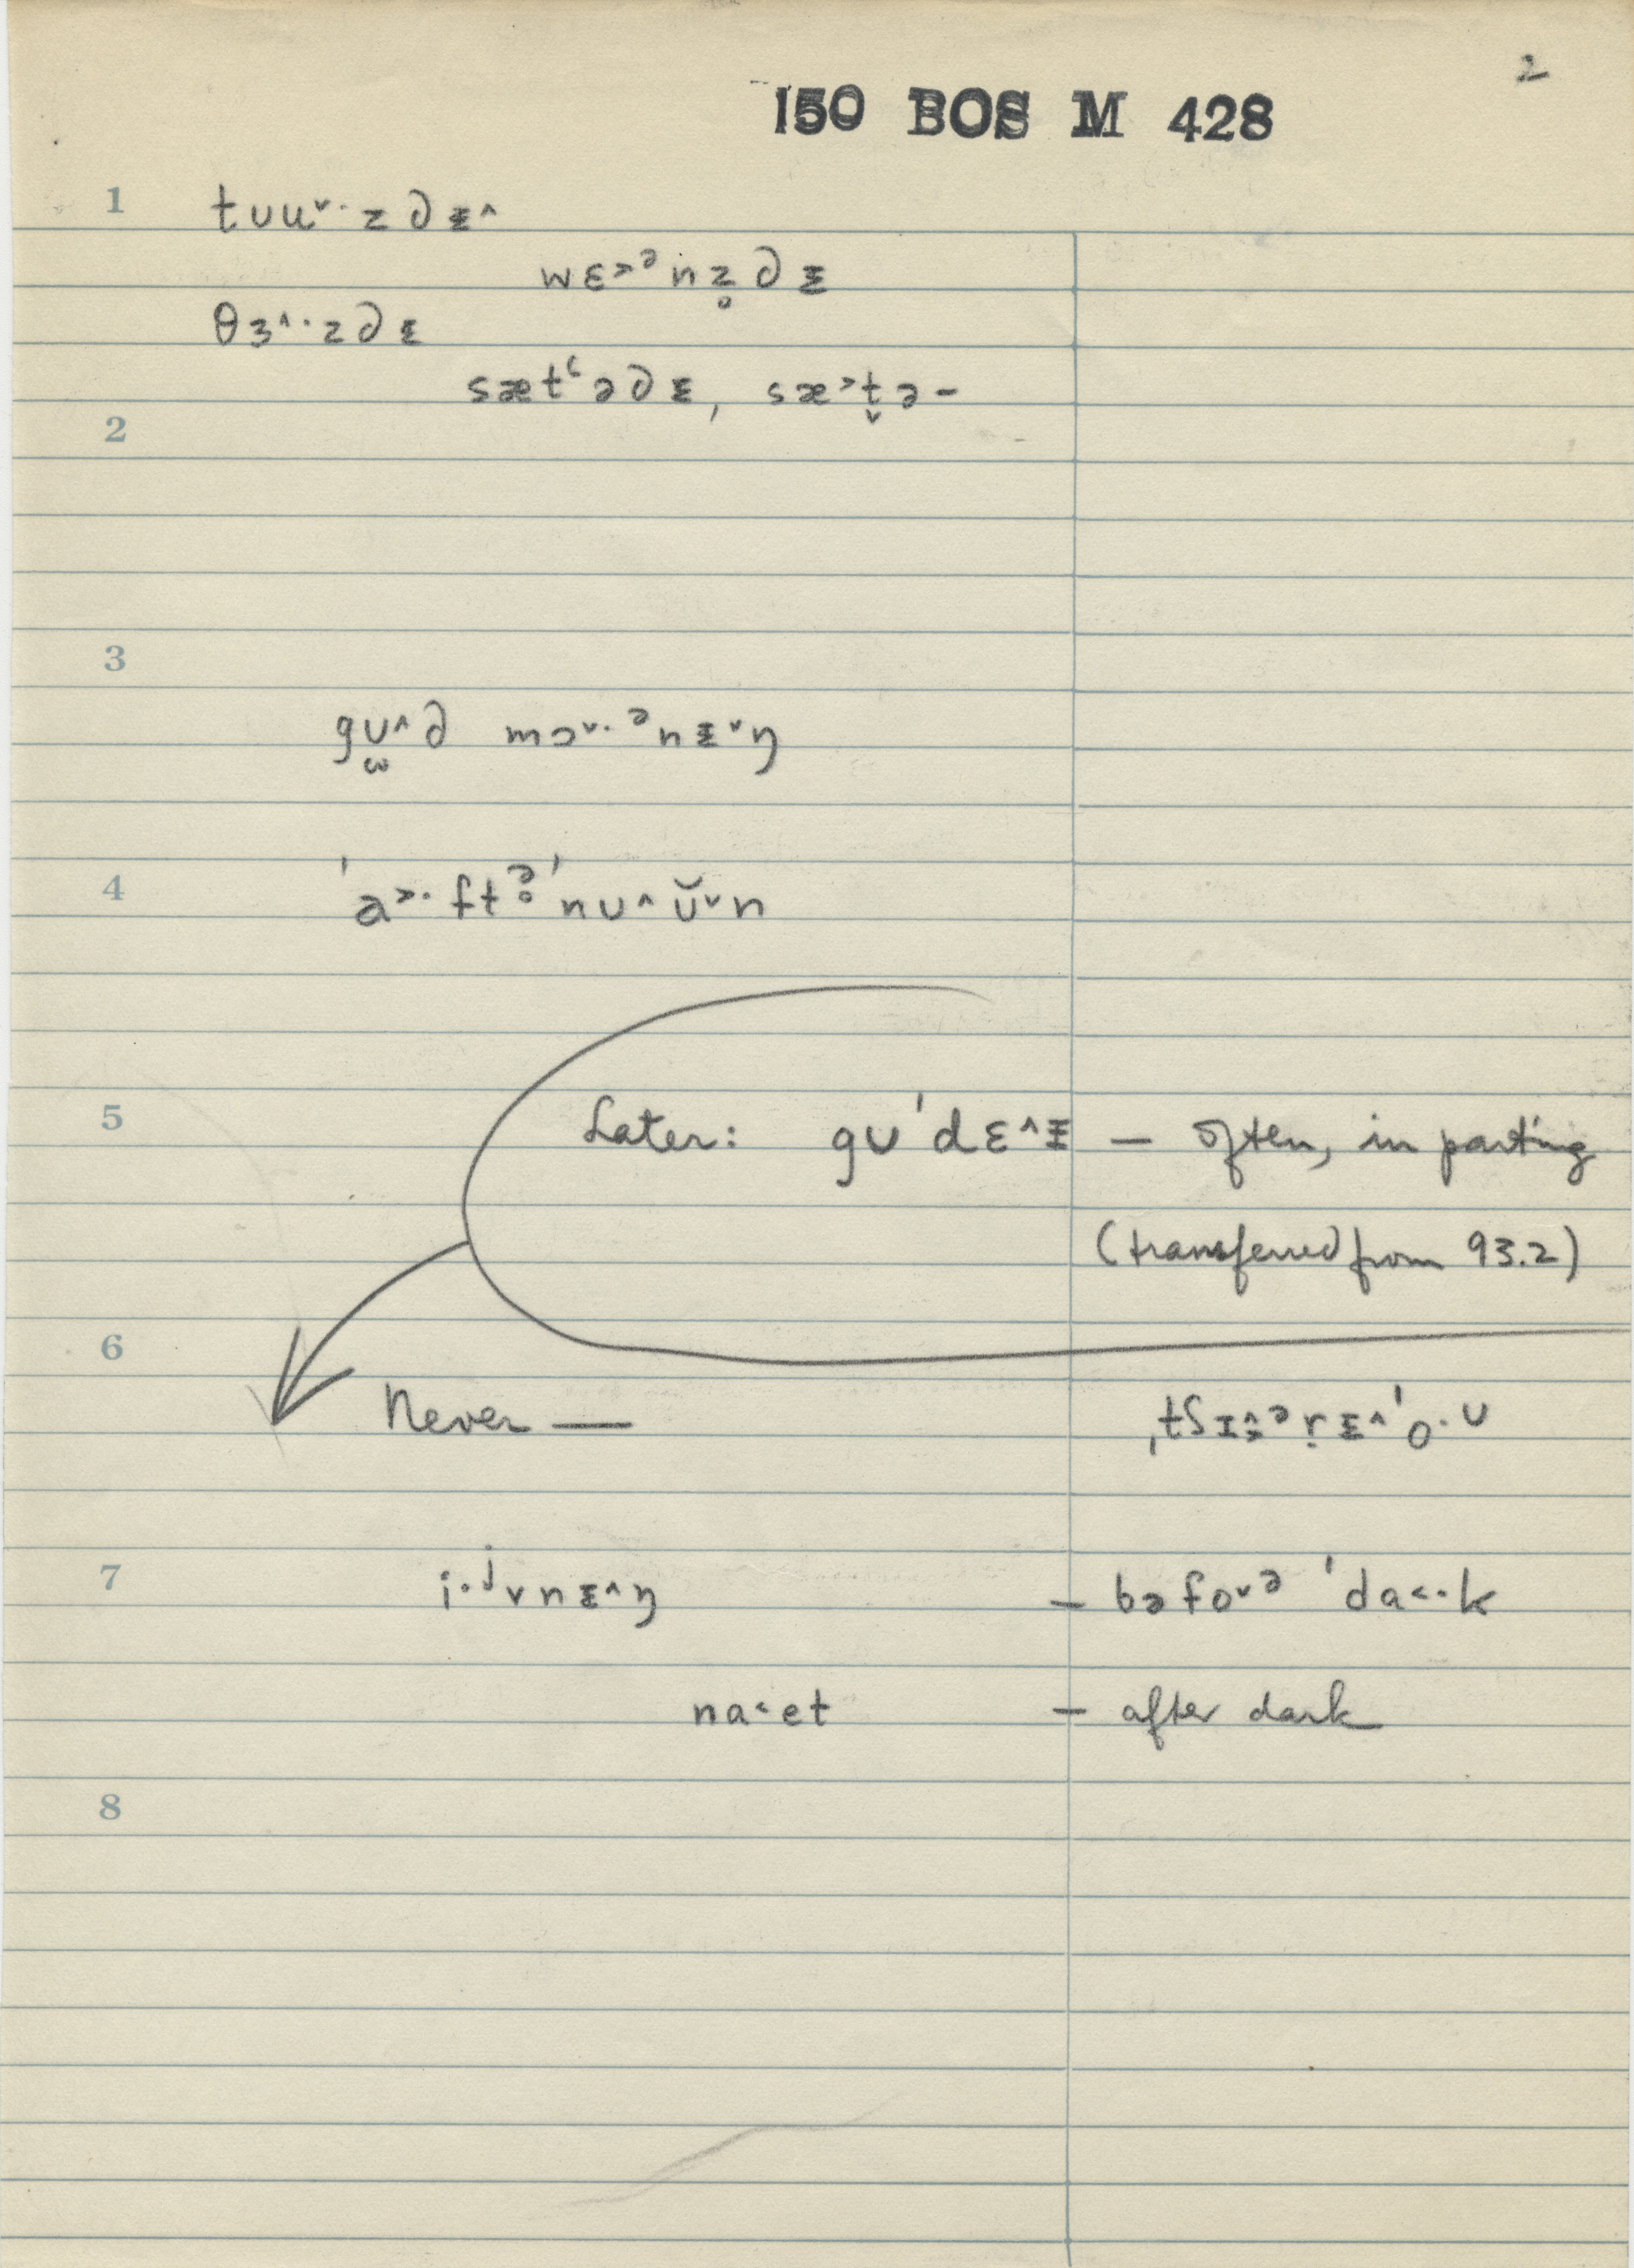 2
150 BOS M 428
1 tʊuˇ·zdᵻ^
wɛ˃ᵊnz̥dᵻ
θɜ^·zdᵻ
sætʻədᵻ, sæ˃t̬ə–
2
3
gʊ̫^d mɔˇ·ᵊnᵻˇŋ
4 ˈa˃·ftᵊ̥ˈnʊ^ŭˇn
5 Later: gʊˈdɛ^ᵻ — often, in parting
(transferred from 93.2)
6
Never —
7 i·ʲvnᵻ^ŋ — bəfoˇᵊ ˈda˂·k
na˂et — after dark
8